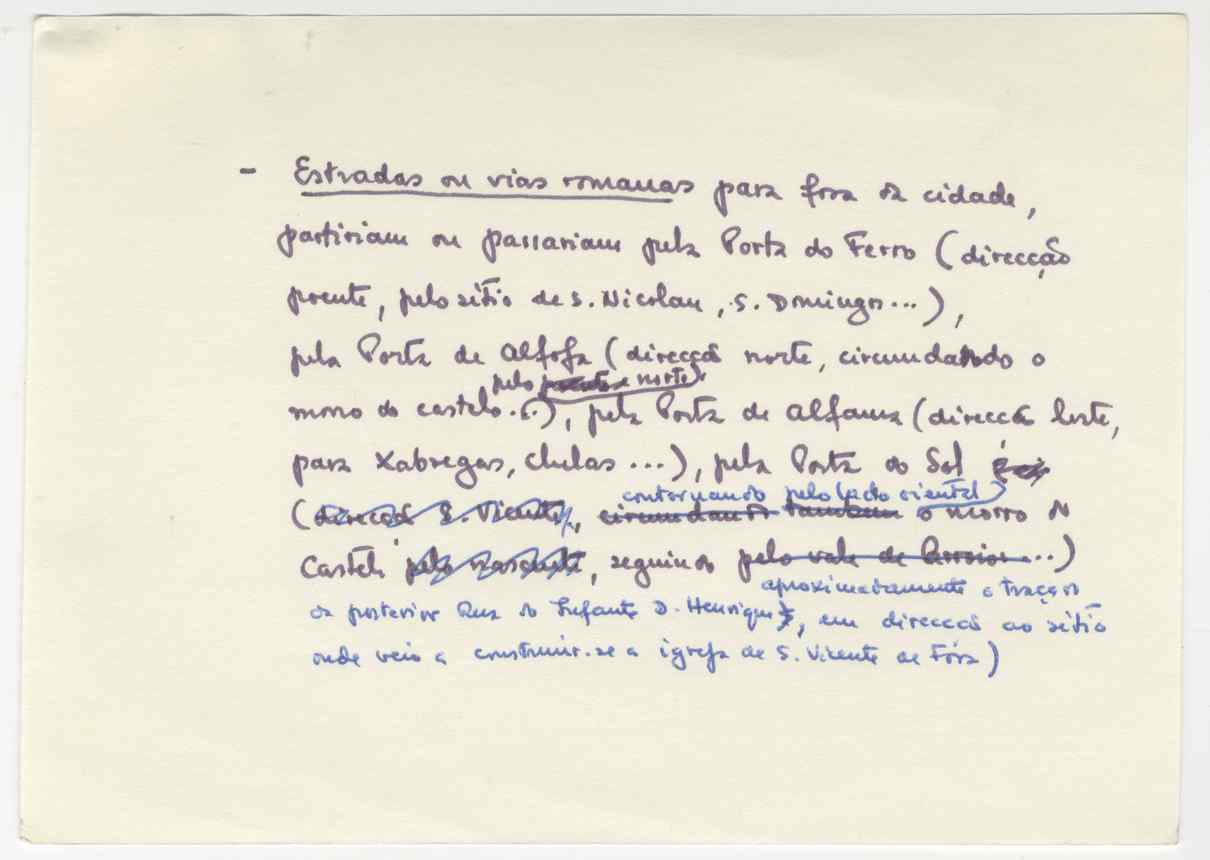 - Estradas ou vias romanas para fora da cidade,
partiriam ou passariam pela Porta do Ferro (direcção
poente, pelo sítio de S. Nicolau, S. Domingos...),
pela Porta de Alfofa (direcção norte, circundando o
pelo poente e norte)
morro do castelo...), pela Porta de Alfama (direcção leste,
para Xabregas, chelas ...), pela Porta do Sol
contornando pelo lado oriental
(direcção S. Vicente, circundando também o morro do
Castelo pelo nascente, seguindo pelo vale de Arroios...)
aproximadamente o traçado
da posterior Rua do Infante D. Henrique, em direcção ao sítio
onde veio a construir-se a igreja de S. Vicente de Fóra)